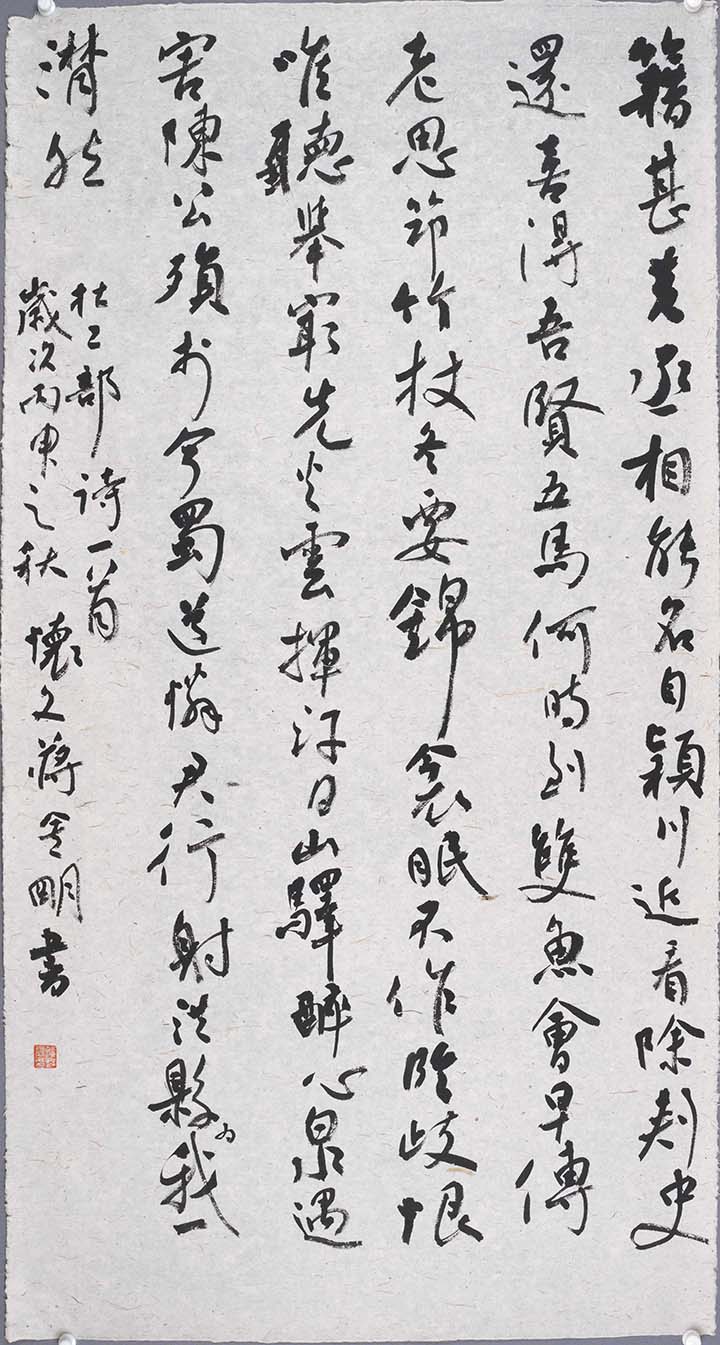 籍甚黄丞相能名自潁川近看除刺史
還喜得吾賢五馬何時到雙魚會早傳
老思笻竹杖冬要錦衾眠不作臨歧恨
唯聽舉最先火雲揮汗日山驛醉心泉遇
害陳公殞於今蜀道憐君行射洪縣为我一
潸然
杜工部诗一首
歲次丙申之秋 懷文蔣明書